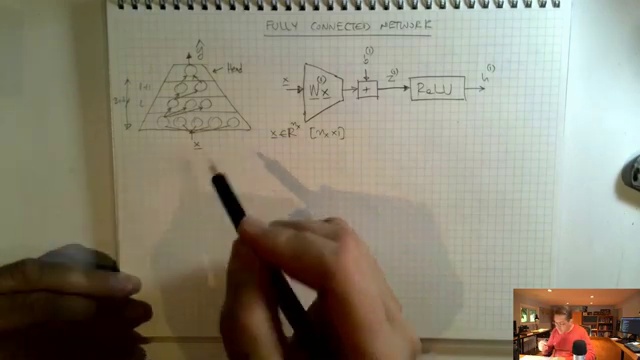 FULLY CONNECTED NETWORK
ŷ
Head
l+1
l
x
x
W⁽¹⁾x
b⁽¹⁾
+
z⁽¹⁾
ReLU
h⁽¹⁾
x ∈ ℝⁿˣ [nₓ×1]